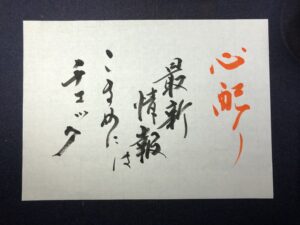 心配り
最新
情報
こまめに
チェック